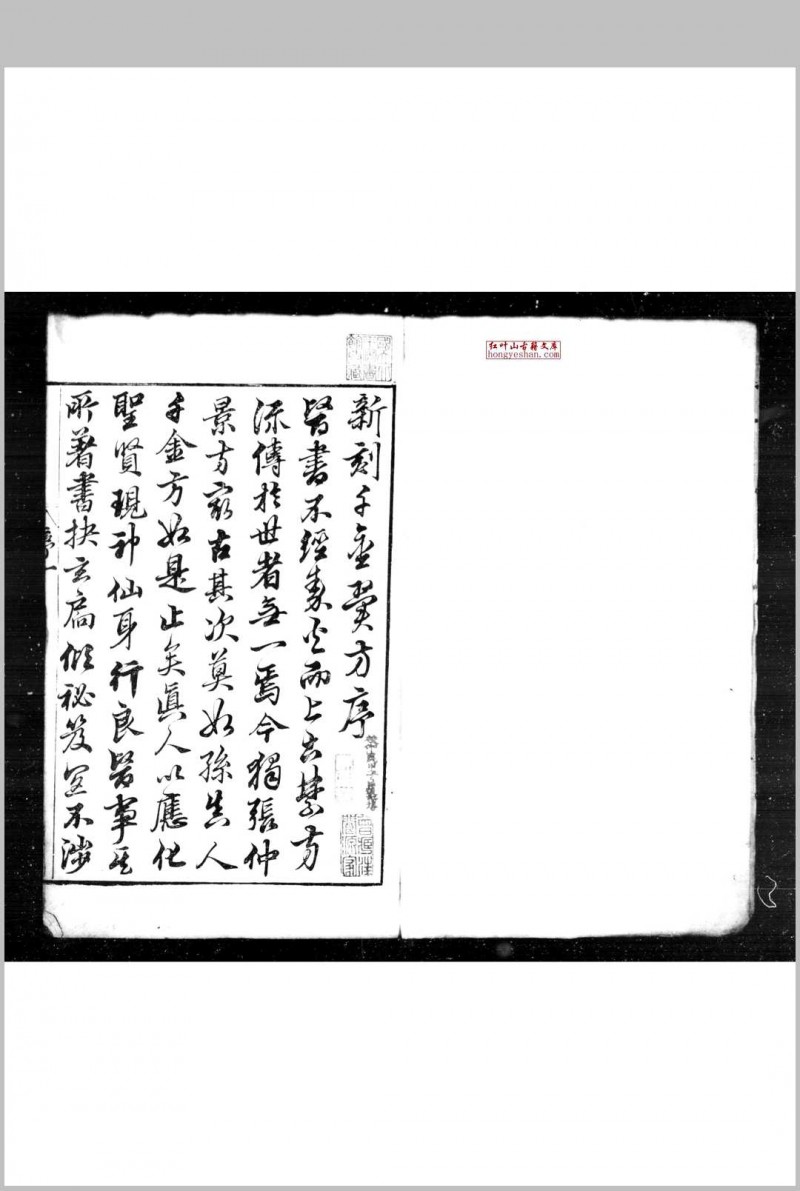 新刻千金翼方序
醫書不經秦火而上古禁方
流傳於世者無一焉今獨張仲
景方最古其次莫如孫真人
千金方如是止矣真人以應化
聖賢現神仙身行良醫事其
所著書抉玄扃傾祕笈並不涉
序一
红叶山古籍文库
hongyeshan.com